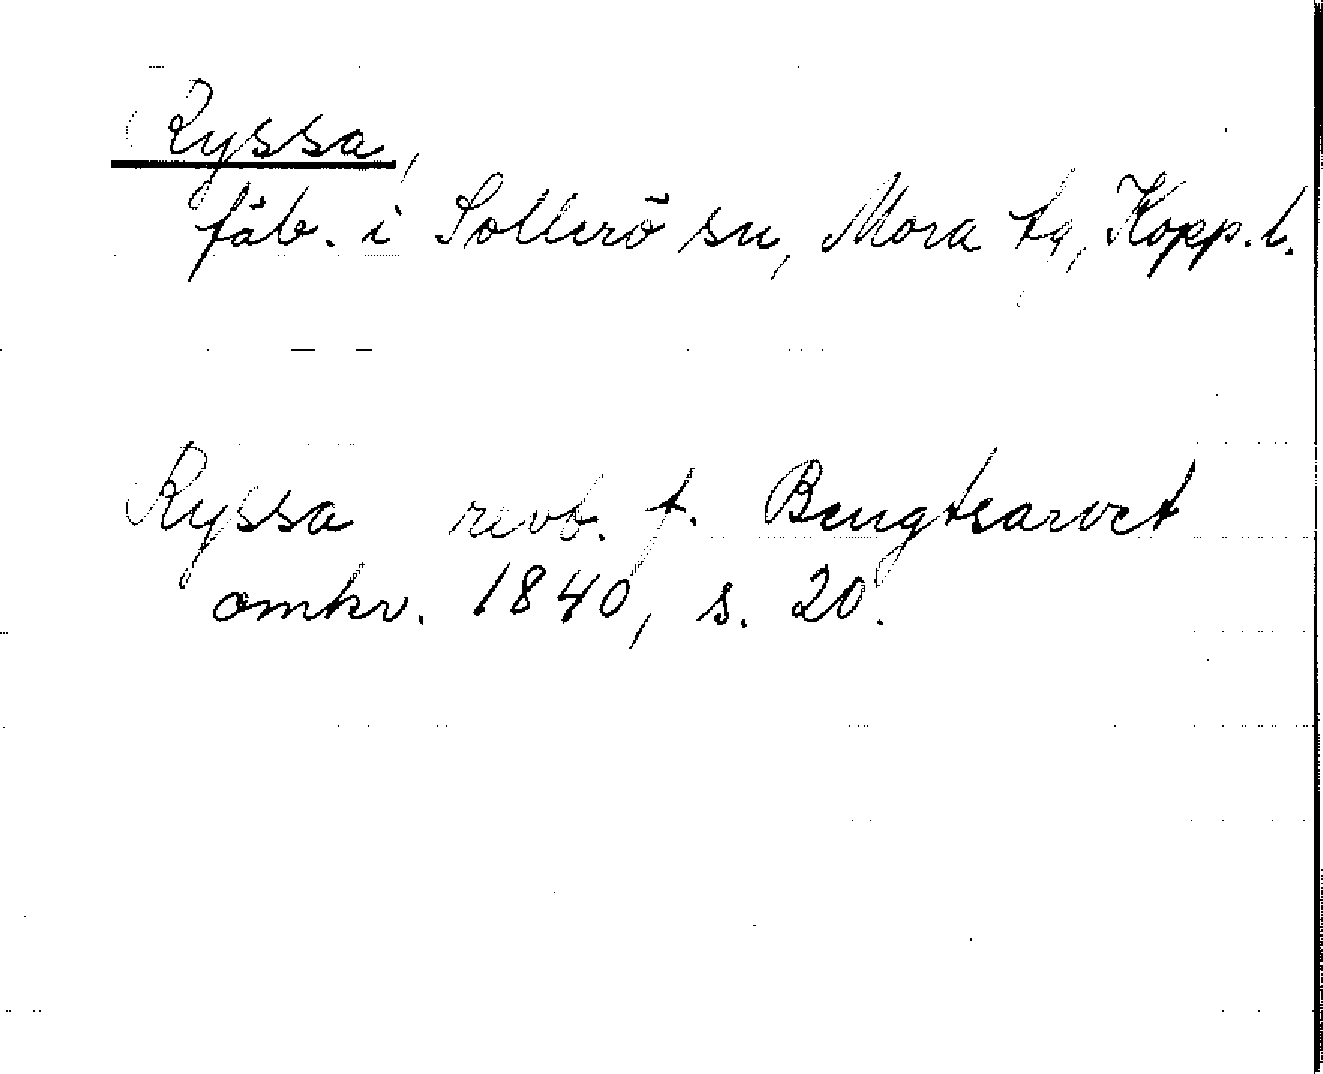 Ryssa,
fäb. i Sollerö sn, Mora tg, Kopp. l.
Ryssa revb. f. Bengtsarvet
omkr. 1840, s. 20.